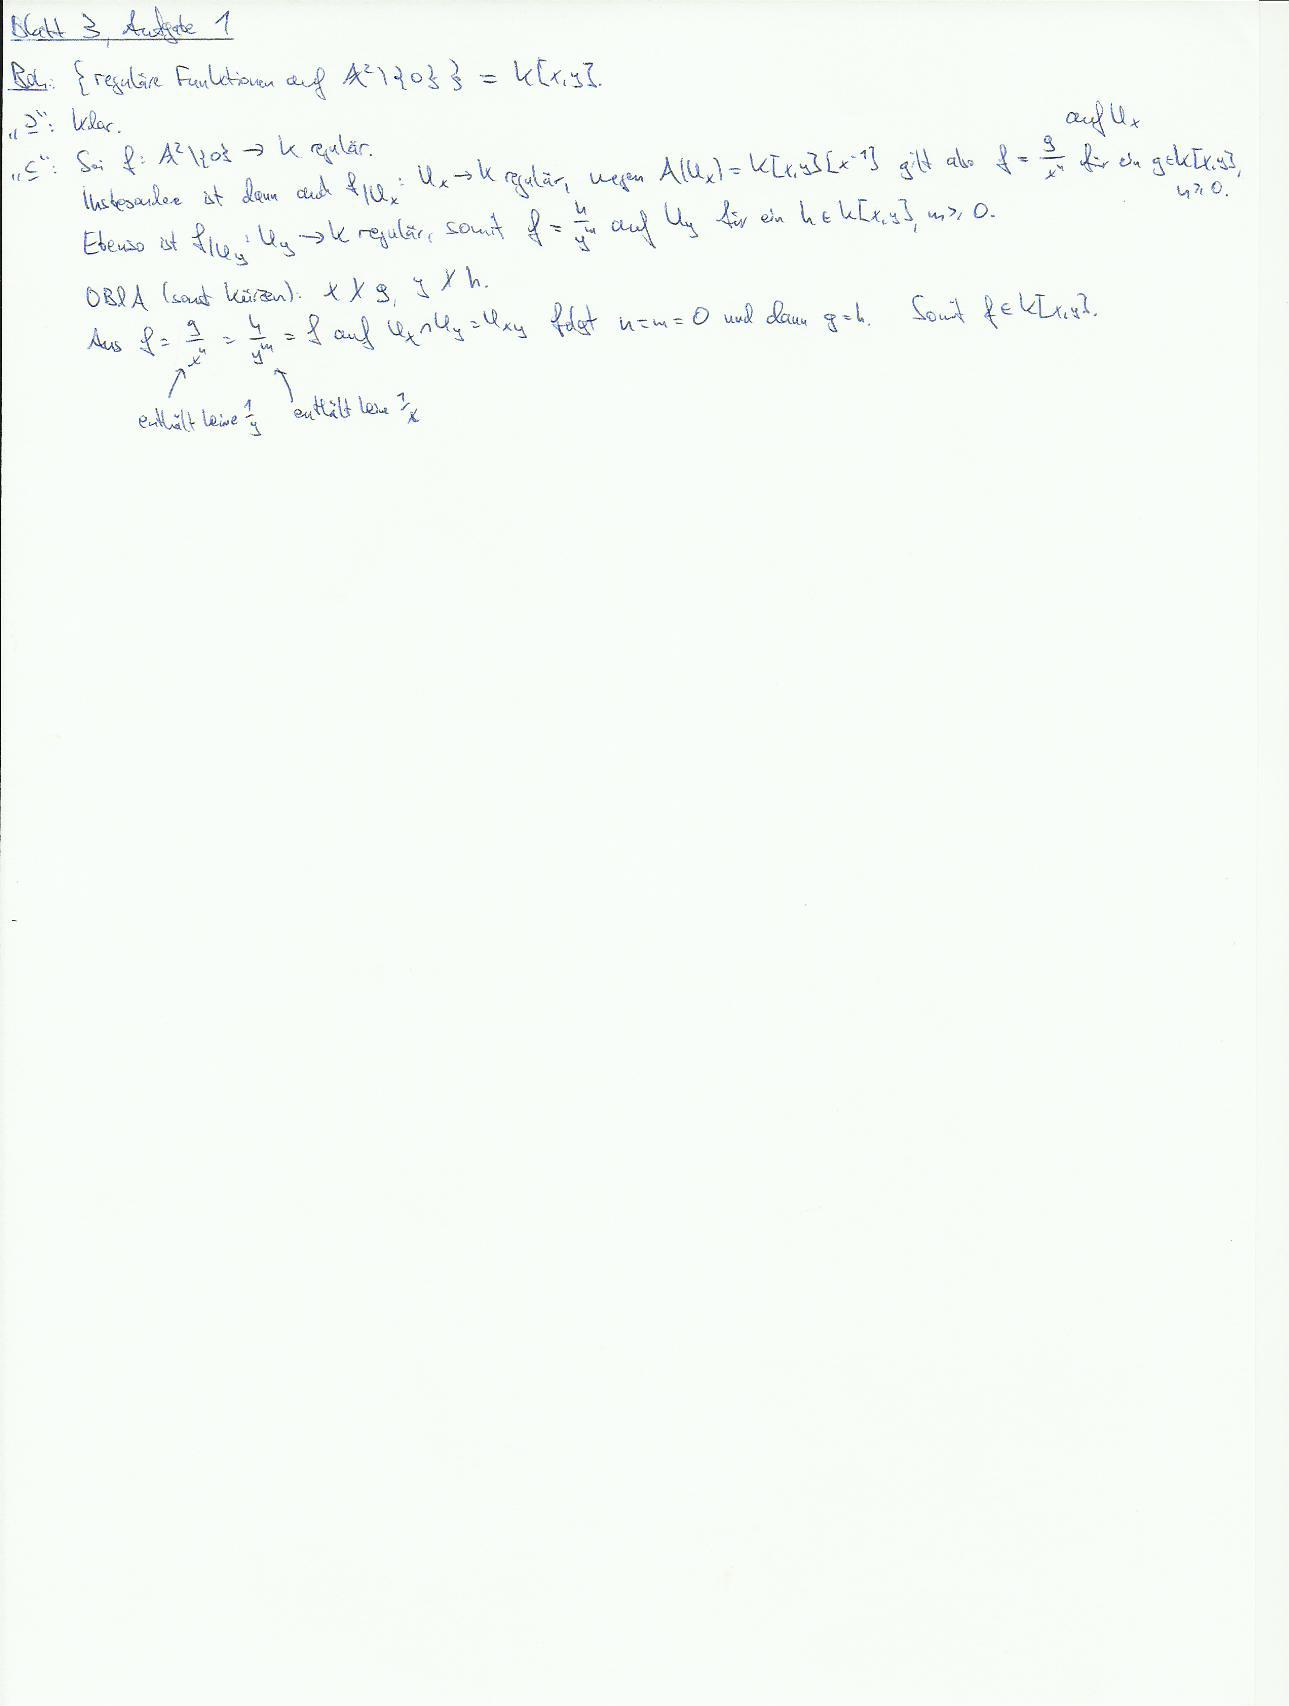 Blatt 3, Aufgabe 1
Beh.: {reguläre Funktionen auf A²\{0}} = k[x,y].
„⊇“: klar.
„⊆“: Sei f: A²\{0} → k regulär.
Insbesondere ist dann auch f|Uₓ : Uₓ → k regulär, wegen A(Uₓ) = k[x,y][x⁻¹] gilt also f = g/xⁿ auf Uₓ für ein g∈k[x,y], n≥0.
Ebenso ist f|U_y : U_y → k regulär, somit f = h/y^m auf U_y für ein h ∈ k[x,y], m≥0.
OBdA (sonst kürzen): x ∤ g, y ∤ h.
Aus f = g/xⁿ = h/y^m = f auf Uₓ∩U_y = U_xy folgt n=m=0 und dann g=h. Somit f∈k[x,y].
enthält keine 1/y enthält keine 1/x